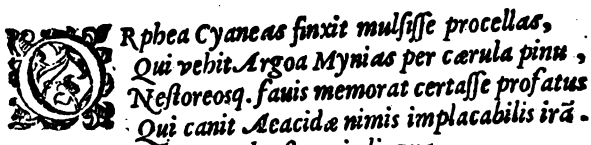 ORphea Cyaneas finxit mulſiſſe procellas,
Qui vehit Argoa Mynias per cærula pinu ,
Neſtoreosq. fauis memorat certaſſe profatus
Qui canit Aeacidæ nimis implacabilis irā.